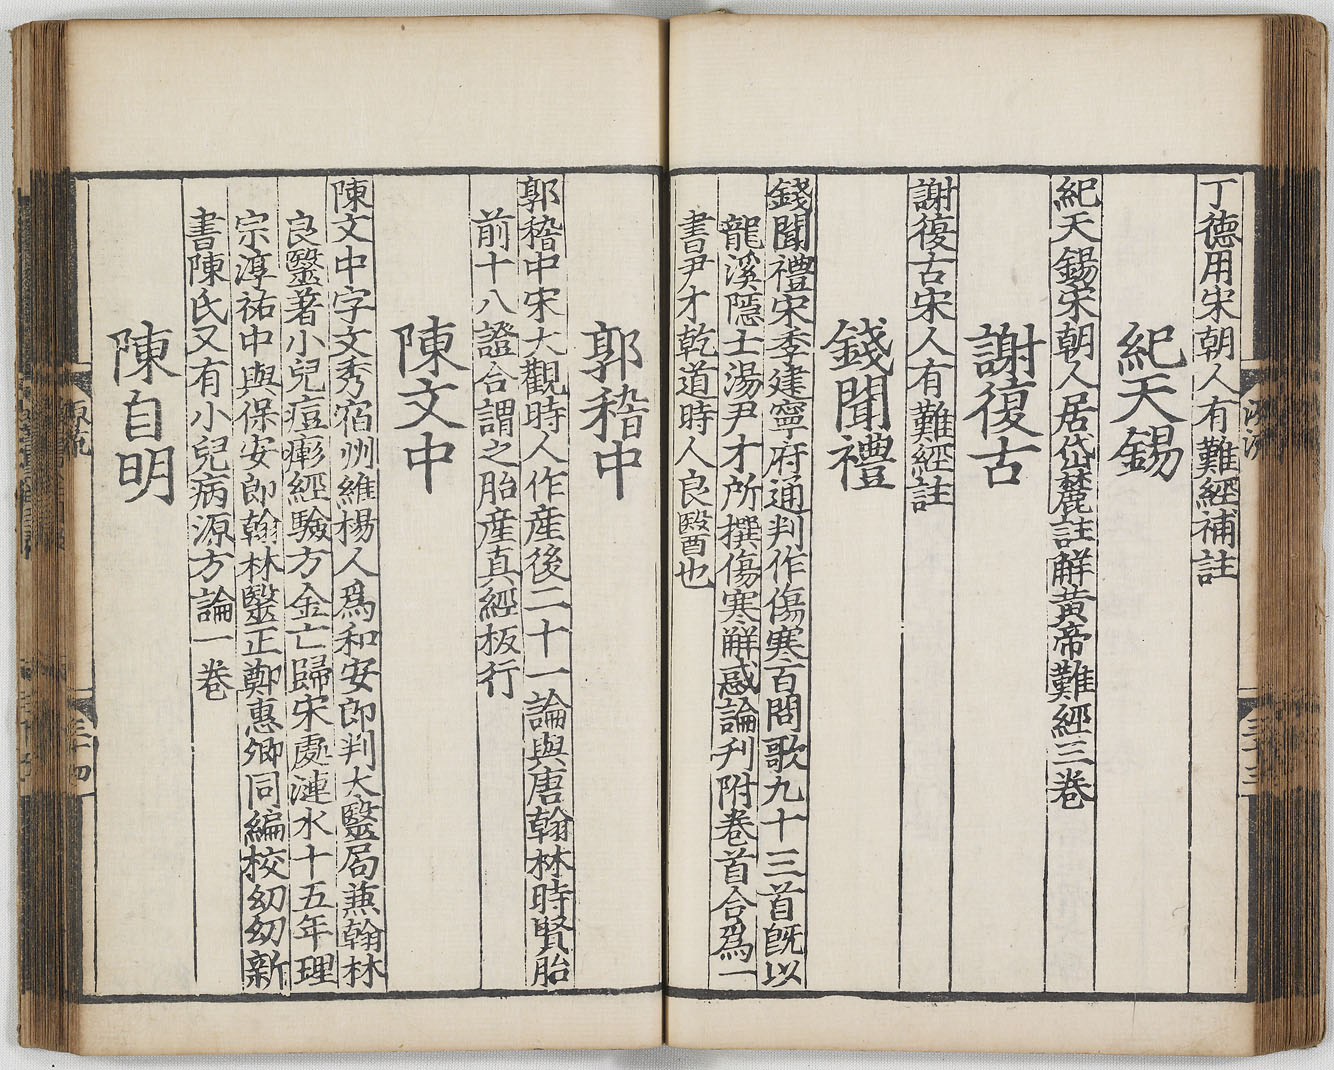 丁德用宋朝人有難經補註
紀天錫
紀天錫宋朝人居岱麓註解黄帝難經三卷
謝復古
謝復古宋人有難經註
錢聞禮
錢聞禮宋季建寧府通判作傷寒百問歌九十三首旣以
龍溪隱士湯尹才所撰傷寒解惑論刋附卷首合爲一
書尹才乾道時人良醫也
郭稽中
郭稽中宋大觀時人作産後二十一論與唐翰林時賢胎
前十八證合謂之胎産真經板行
陳文中
陳文中字文秀宿州維楊人爲和安郎判太毉局兼翰林
良毉著小兒痘瘮經驗方金亡歸宋處漣水十五年理
宗淳祐中與保安郎翰林毉正鄭惠卿同編校幼幼新
書陳氏又有小兒病源方論一卷
陳自明